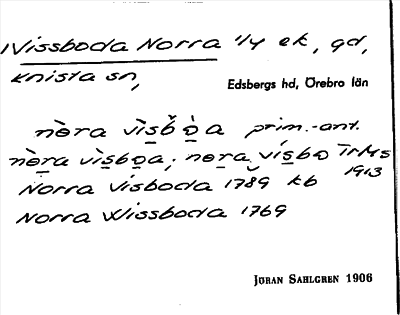 Nissboda Norra 1/4 ek, gd,
Knista sn,
Edsbergs hd, Örebro län
nòra vìsbǒ̀a prim.-ant.
nòra vìsbòa; nora vísbo TrMs
1913
Norra Visboda 1789 kb
Norra Wissboda 1769
Jöran Sahlgren 1906